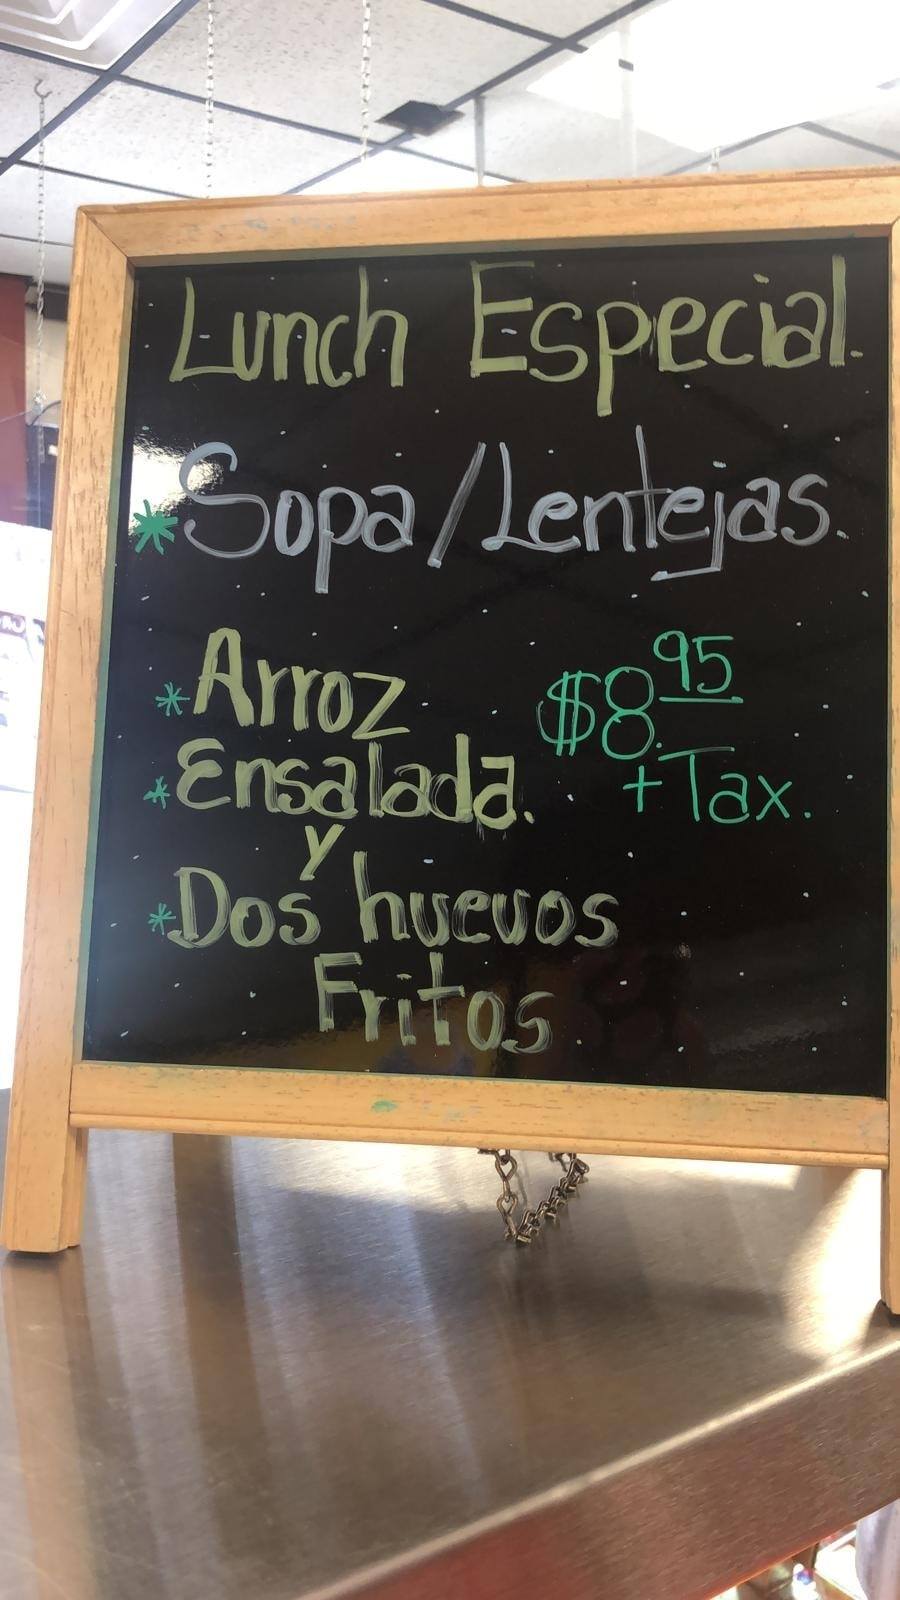 Lunch Especial.
* Sopa/Lentejas.
* Arroz
$8.95
* Ensalada.
+Tax.
y
* Dos huevos
Fritos